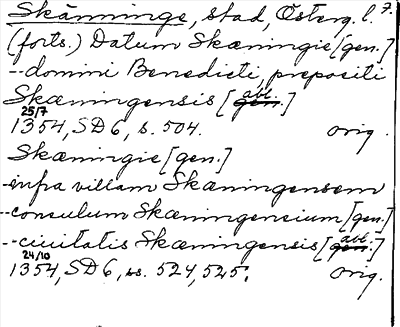 Skänninge, stad, Österg. l. 7.
(forts.) Datum Skæningie [gen.]
-- domini Benedicti, prepositi
Skæningensis [gen. abl.]
25/7
1354, SD 6, s. 504. orig.
Skæningie [gen.]
-- infra villam Skæningensem
-- consulum Skæningensium [gen.]
-- ciuitatis Skæningensis [gen. abl.]
24/10
1354, SD 6, ss. 524, 525. orig.